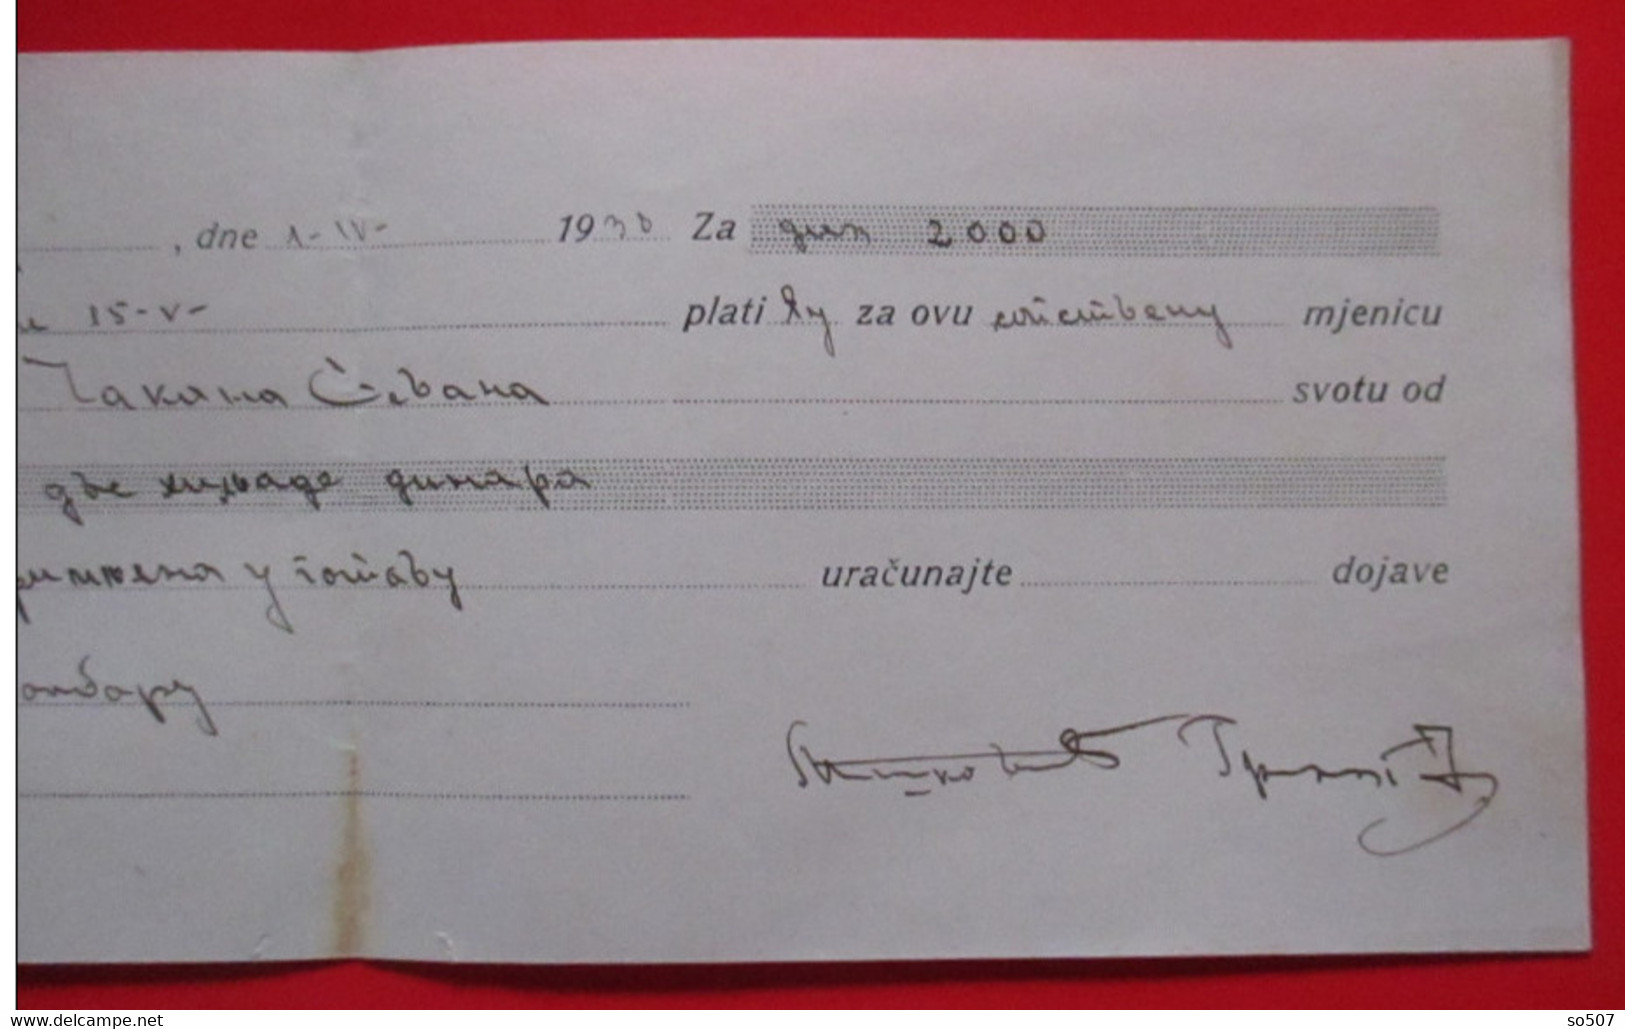 , dne 1-IV- 1930 Za дин 2000
15-V- plati ћу za ovu сопствену mjenicu
svotu od
две хиљаде динара
у готову uračunajte dojave
www.delcampe.net so507